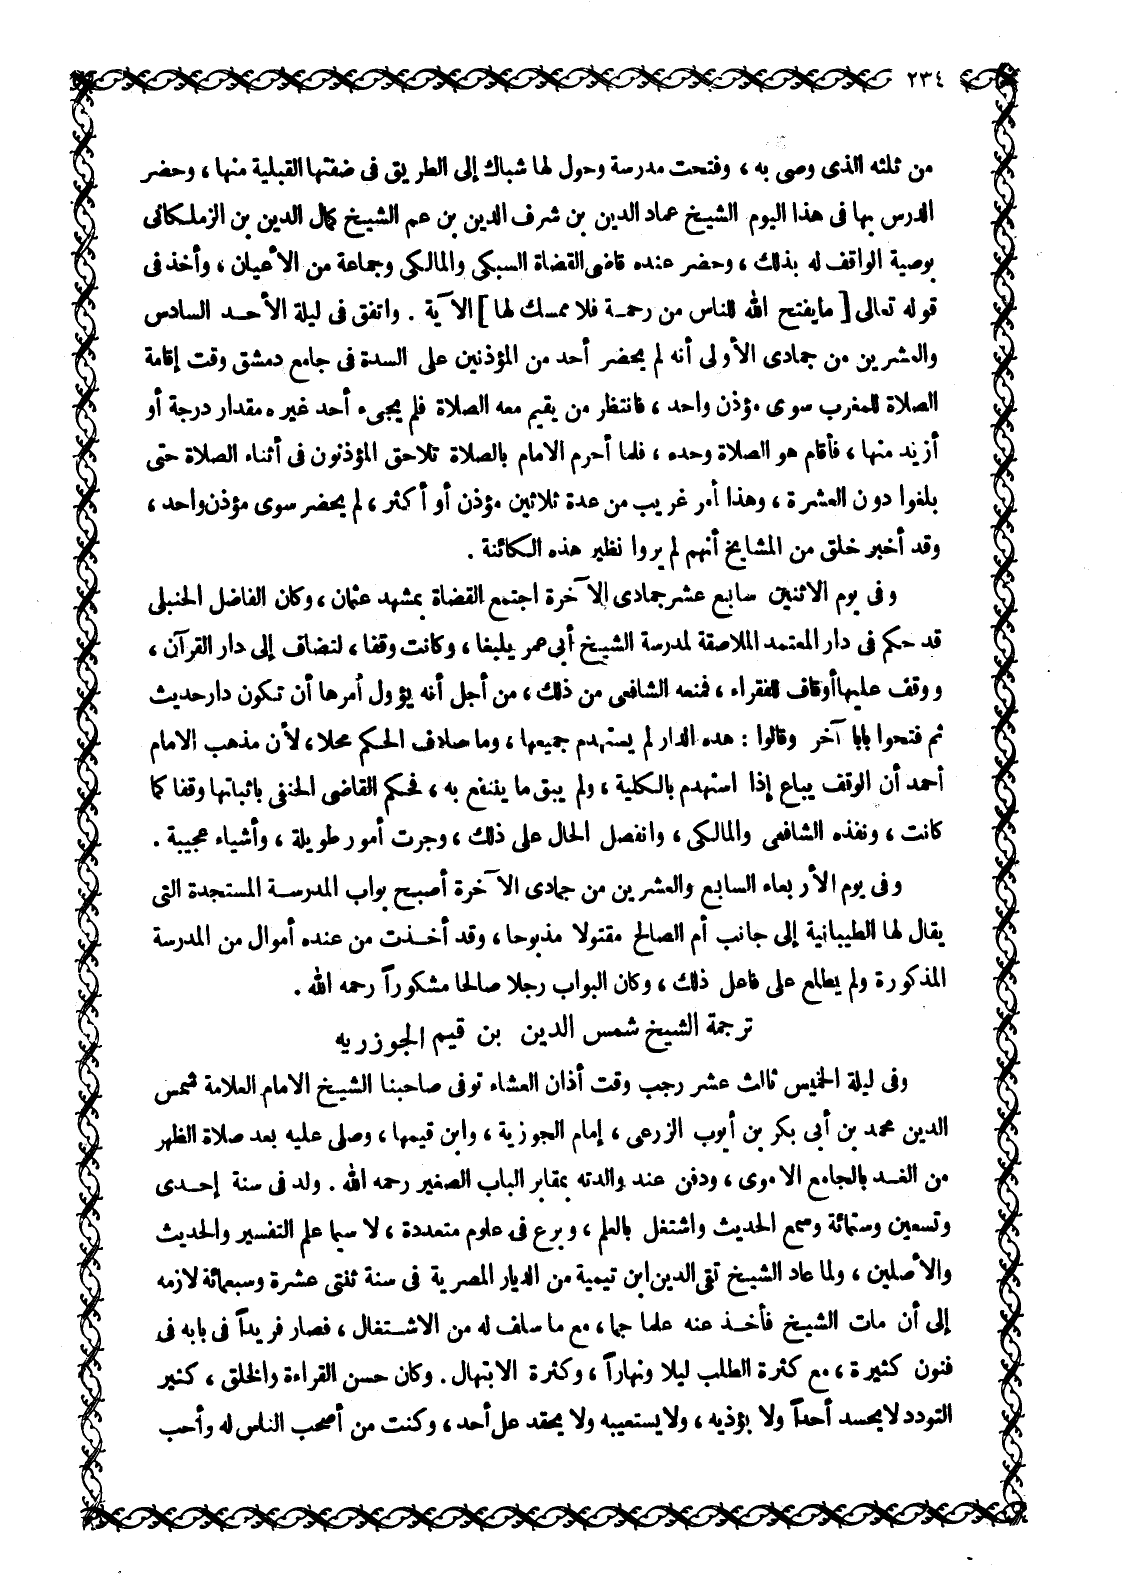 ٢٣٤
من ثلثه الذى وصى به ، وفتحت مدرسة وحول لها شباك إلى الطريق فى ضفتها القبلية منها ، وحضر
الدرس بها فى هذا اليوم الشيخ عماد الدين بن شرف الدين بن عم الشيخ كمال الدين بن الزملكانى
بوصية الواقف له بذلك ، وحضر عنده قاضى القضاة السبكى والمالكى وجماعة من الأعيان ، وأخذ فى
قوله تعالى [ ما يفتح الله للناس من رحمة فلا ممسك لها ] الآية . واتفق فى ليلة الأحد السادس
والعشرين من جمادى الأولى أنه لم يحضر أحد من المؤذنين على السدة فى جامع دمشق وقت إقامة
الصلاة للمغرب سوى مؤذن واحد ، فانتظر من يقيم معه الصلاة فلم يجىء أحد غيره مقدار درجة أو
أزيد منها ، فأقام هو الصلاة وحده ، فلما أحرم الامام بالصلاة تلاحق المؤذنون فى أثناء الصلاة حتى
بلغوا دون العشرة ، وهذا أمر غريب من عدة ثلاثين مؤذن أو أكثر ، لم يحضر سوى مؤذن واحد ،
وقد أخبر خلق من المشايخ أنهم لم يروا نظير هذه الكائنة .
وفى يوم الاثنين سابع عشر جمادى الآخرة اجتمع القضاة بمشهد عثمان ، وكان الفاضل الحنبلى
قد حكم فى دار المعتمد الملاصقة لمدرسة الشيخ أبى عمر يلبغا ، وكانت وقفا ، لتضاف إلى دار القرآن ،
ووقف عليها أوقاف للفقراء ، فمنعه الشافعى من ذلك ، من أجل أنه يؤول أمرها أن تكون دار حديث
ثم فتحوا بابا آخر وقالوا : هذه الدار لم يستهدم جميعها ، وما صادف الحكم محلا ، لأن مذهب الامام
أحمد أن الوقف يباع إذا استهدم بالكلية ، ولم يبق ما ينتفع به ، فحكم القاضى الحنفى باثباتها وقفا كما
كانت ، ونفذه الشافعى والمالكى ، وانفصل الحال على ذلك ، وجرت أمور طويلة ، وأشياء عجيبة .
وفى يوم الأربعاء السابع والعشرين من جمادى الآخرة أصبح بواب المدرسة المستجدة التى
يقال لها الطيبانية إلى جانب أم الصالح مقتولا مذبوحا ، وقد أخذت من عنده أموال من المدرسة
المذكورة ولم يطلع على فاعل ذلك ، وكان البواب رجلا صالحا مشكوراً رحمه الله .
ترجمة الشيخ شمس الدين بن قيم الجوزريه
وفى ليلة الخميس ثالث عشر رجب وقت أذان العشاء توفى صاحبنا الشيخ الامام العلامة شمس
الدين محمد بن أبى بكر بن أيوب الزرعى ، إمام الجوزية ، وابن قيمها ، وصلى عليه بعد صلاة الظهر
من الغد بالجامع الاموى ، ودفن عند والدته بمقابر الباب الصغير رحمه الله . ولد فى سنة إحدى
وتسعين وستمائة وسمع الحديث واشتغل بالعلم ، وبرع فى علوم متعددة ، لا سيما علم التفسير والحديث
والأصلين ، ولما عاد الشيخ تقى الدين ابن تيمية من الديار المصرية فى سنة ثنتى عشرة وسبعمائة لازمه
إلى أن مات الشيخ فأخذ عنه علما جما ، مع ما سلف له من الاشتغال ، فصار فريداً فى بابه فى
فنون كثيرة ، مع كثرة الطلب ليلا ونهاراً ، وكثرة الابتهال . وكان حسن القراءة والخلق ، كثير
التودد لا يحسد أحداً ولا يؤذيه ، ولا يستعيبه ولا يحقد على أحد ، وكنت من أصحب الناس له وأحب